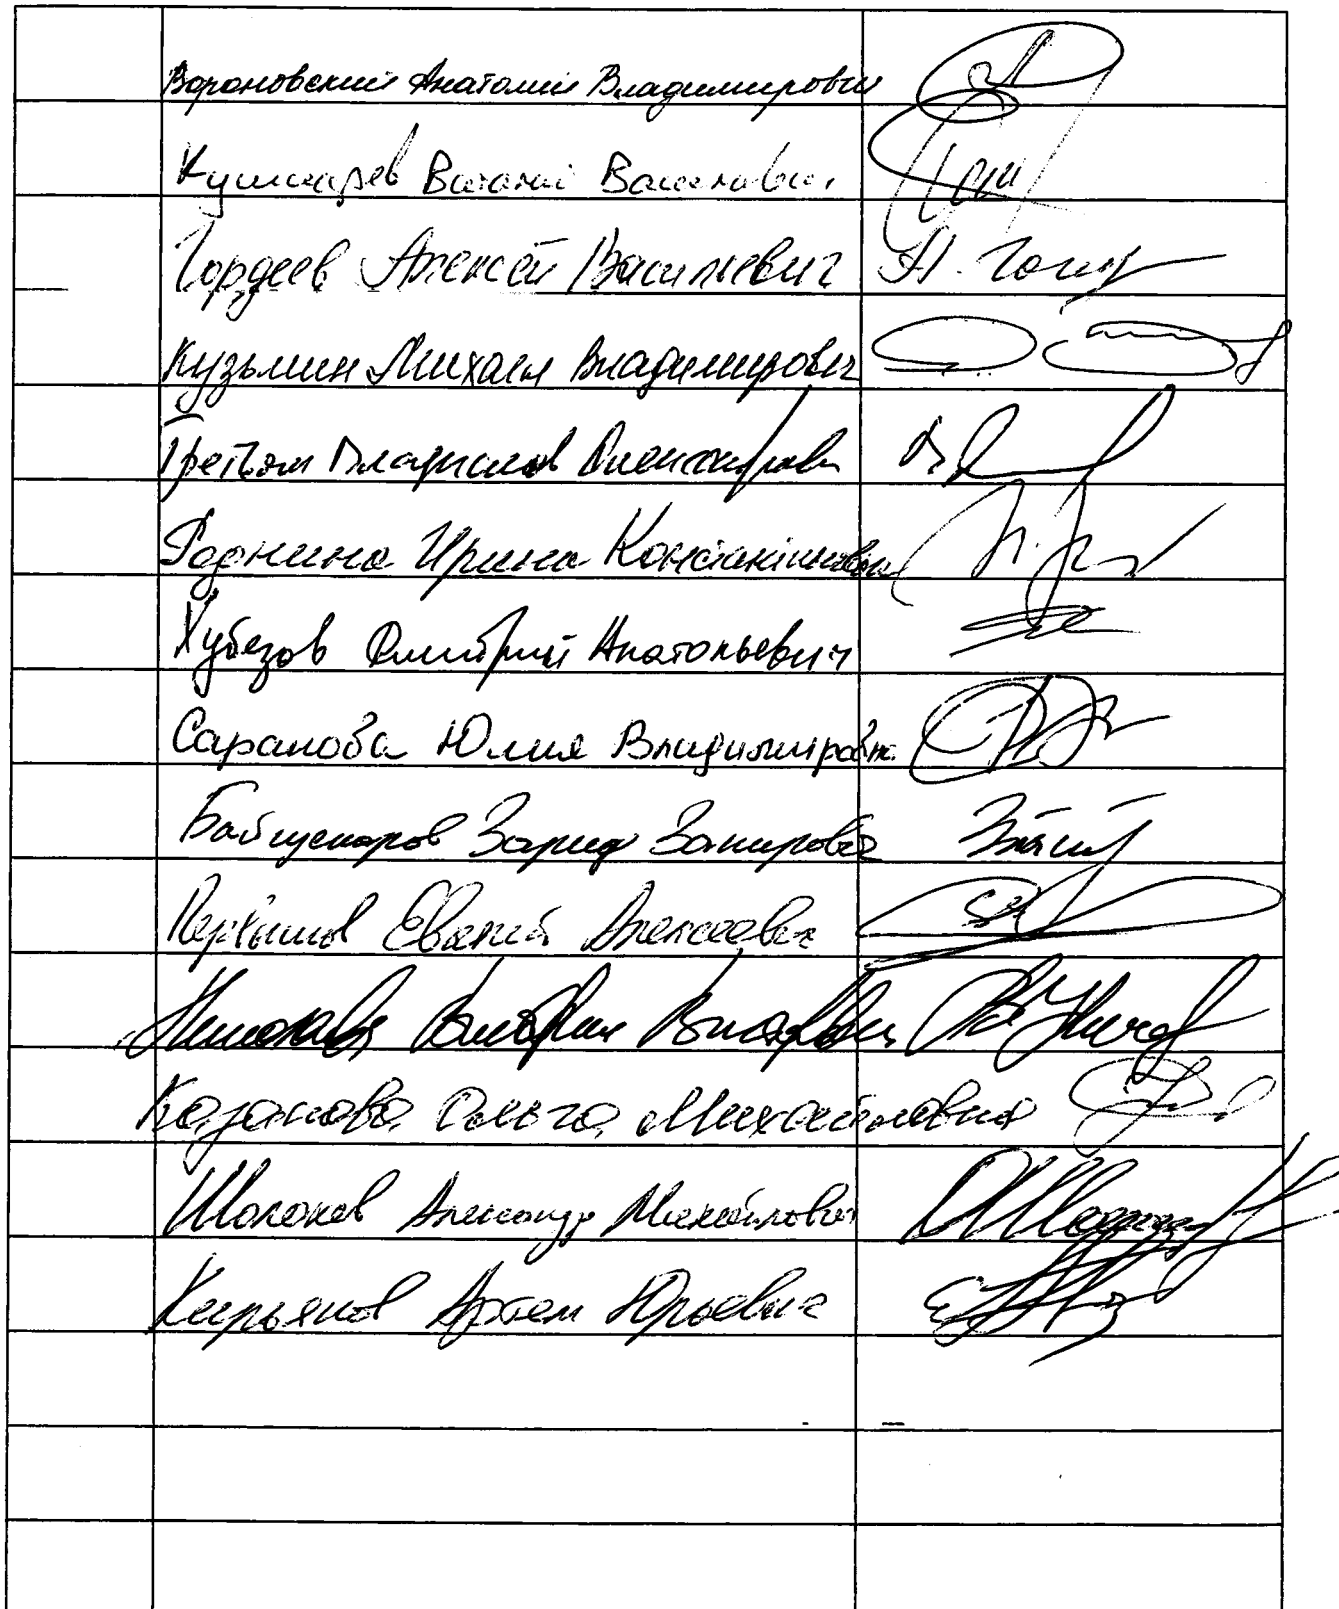 Вороновский Анатолий Владимирович
Кушнарев Виталий Васильевич
Гордеев Алексей Васильевич А. Горд
Кузьмин Михаил Владимирович
Третьяк Владислав Александрович
Роднина Ирина Константиновна
Хубезов Дмитрий Анатольевич
Саранова Юлия Владимировна
Байгускаров Зариф Закирович
Первышов Евгений Алексеевич
Виктория Викторовна
Казакова Ольга Михайловна
Шолохов Александр Михайлович
Кирьянов Артем Юрьевич